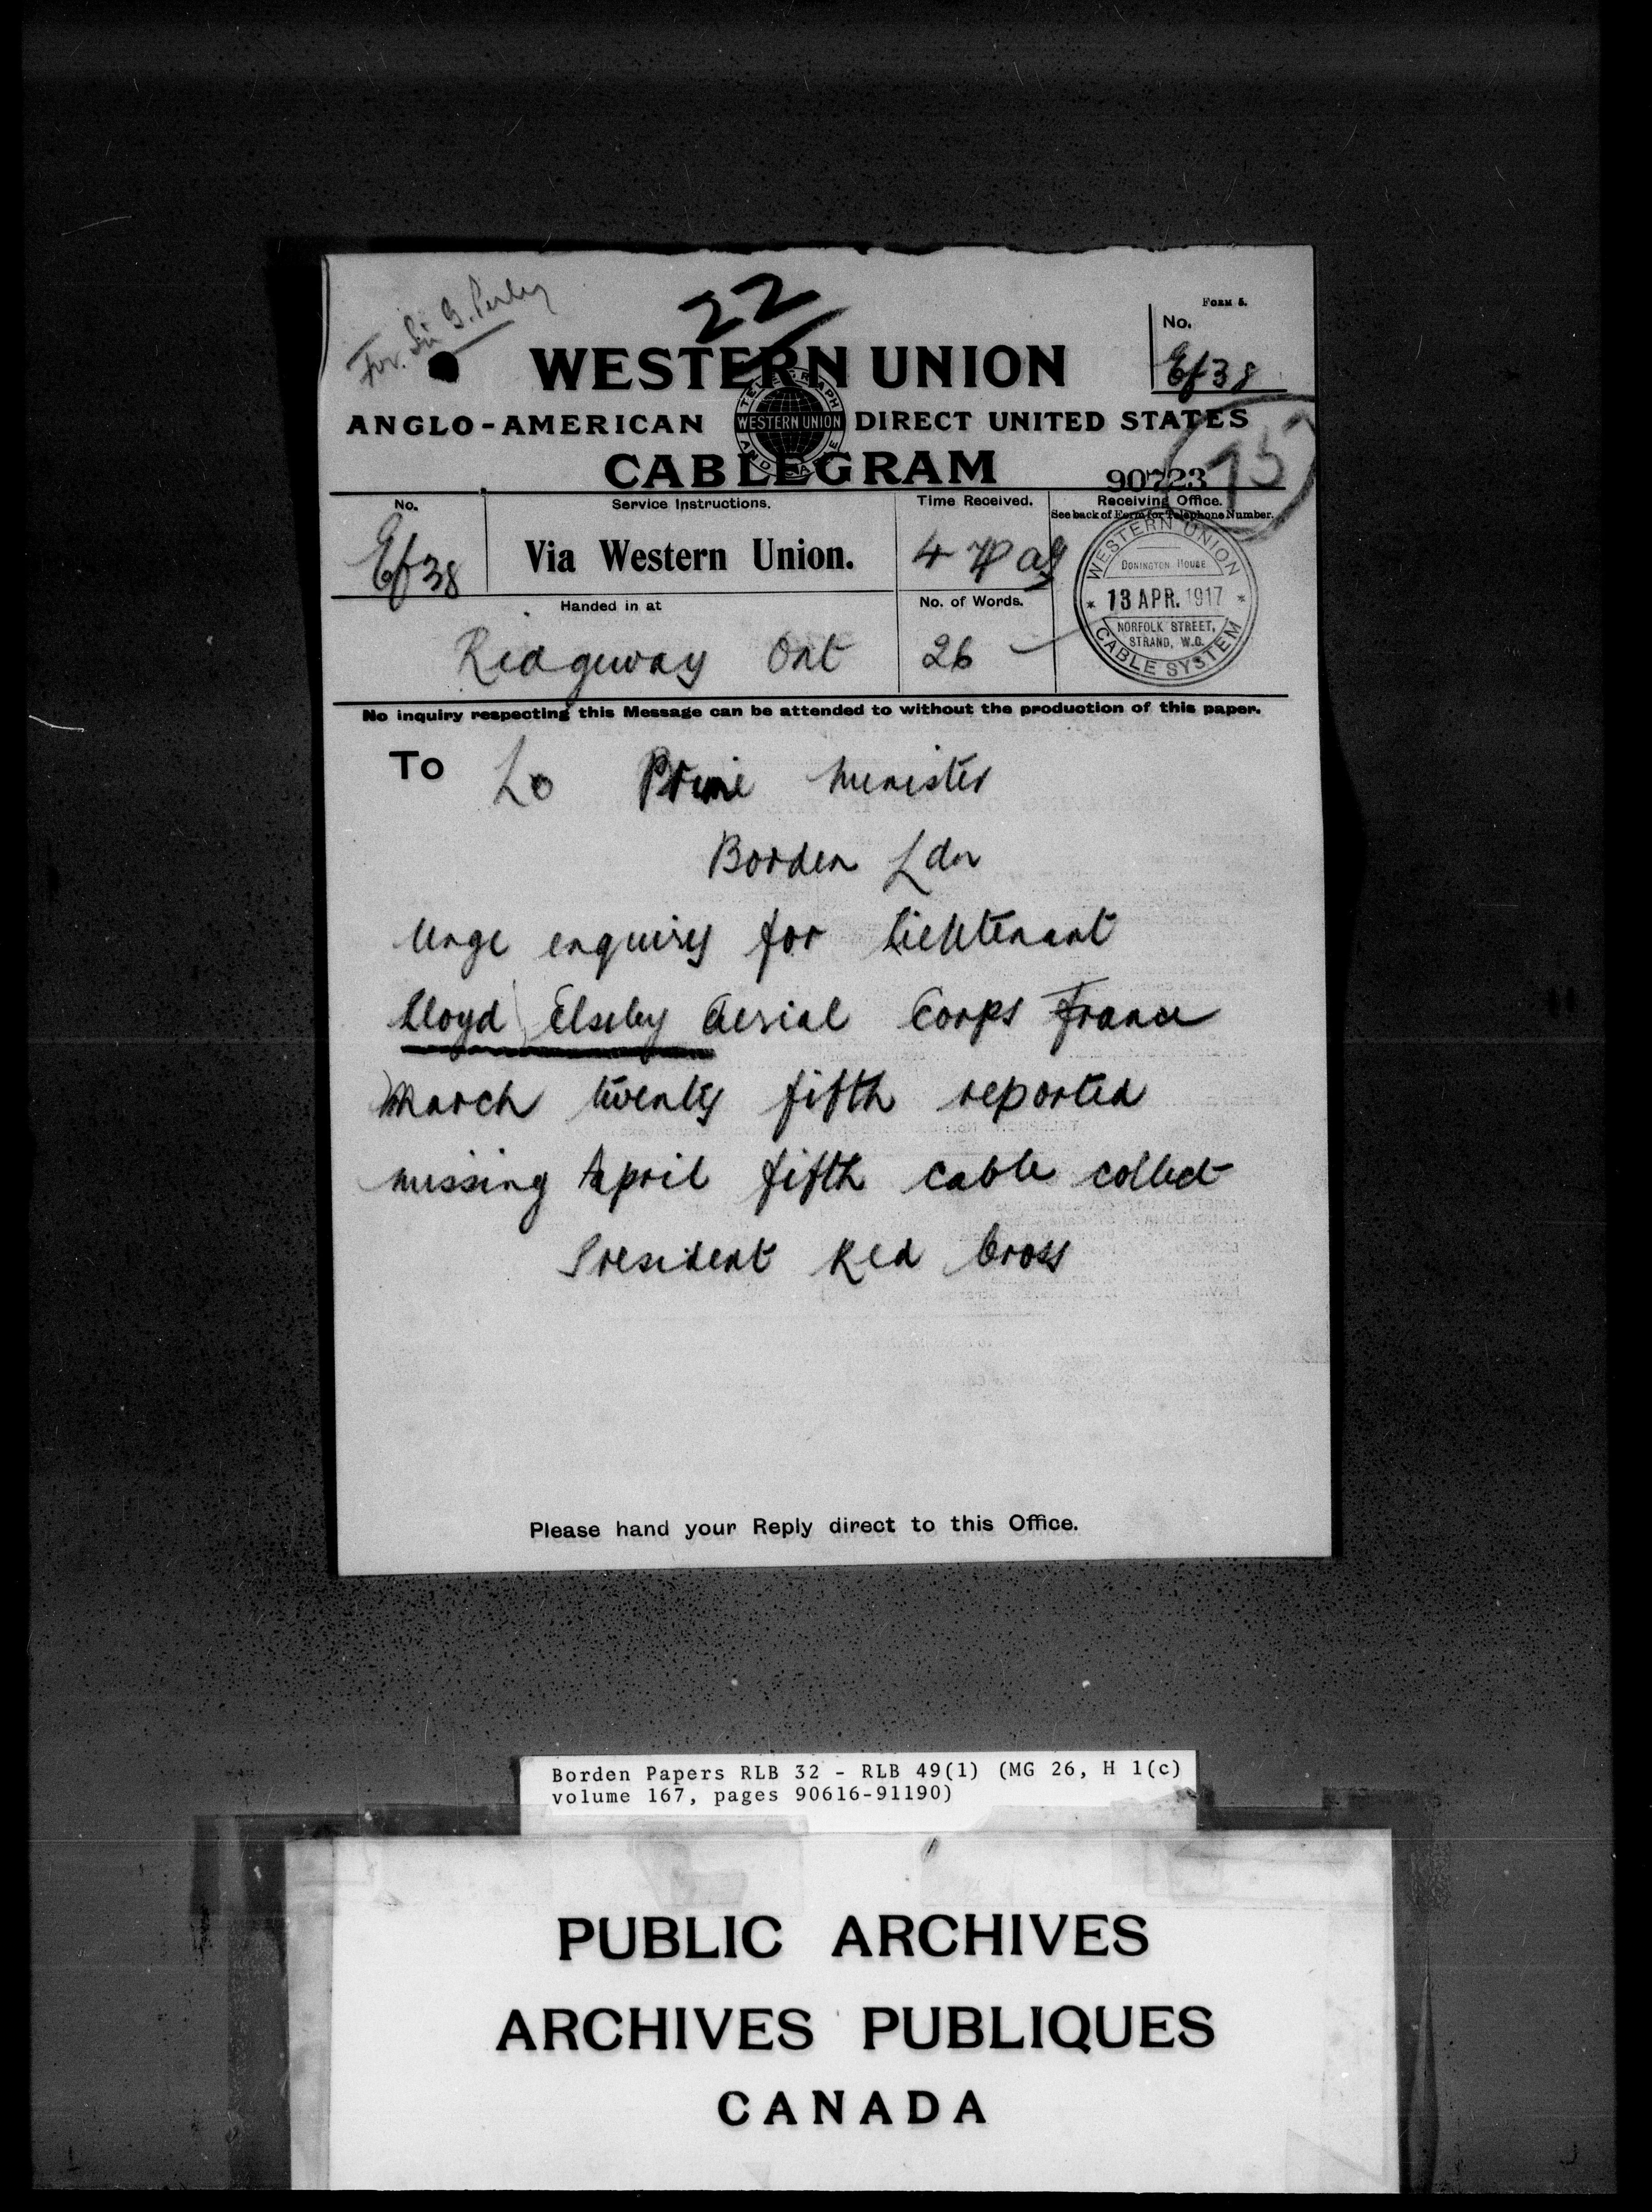 For. Sir G. Perley
22
FORM 5.
No.
Ef38
WESTERN UNION
ANGLO-AMERICAN DIRECT UNITED STATES
TELEGRAPH AND CABLE
WESTERN UNION
CABLEGRAM
90723
15
No.
Service Instructions.
Time Received.
Receiving Office.
See back of Form for Telephone Number.
Ef38
Via Western Union.
4
WESTERN UNION
DONINGTON HOUSE
* 13 APR. 1917 *
NORFOLK STREET,
STRAND, W.C.
CABLE SYSTEM
Handed in at
No. of Words.
Ridgeway Ont
26
No inquiry respecting this Message can be attended to without the production of this paper.
To Lo Prime Minister
Borden Ldn
Urge enquiry for Lieutenant
Lloyd Elsley Aerial Corps France
March twenty fifth reported
missing April fifth cable collect
President Red Cross
Please hand your Reply direct to this Office.
Borden Papers RLB 32 - RLB 49(1) (MG 26, H 1(c)
volume 167, pages 90616-91190)
PUBLIC ARCHIVES
ARCHIVES PUBLIQUES
CANADA